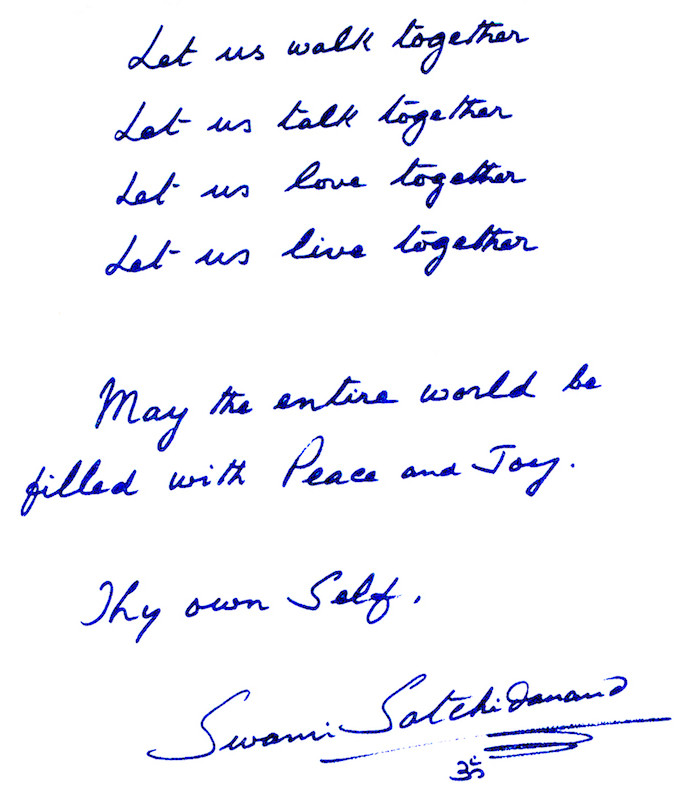 Let us walk together
Let us talk together
Let us love together
Let us live together
May the entire world be
filled with Peace and Joy.
Thy own Self.
Swami Satchidanand
ॐ